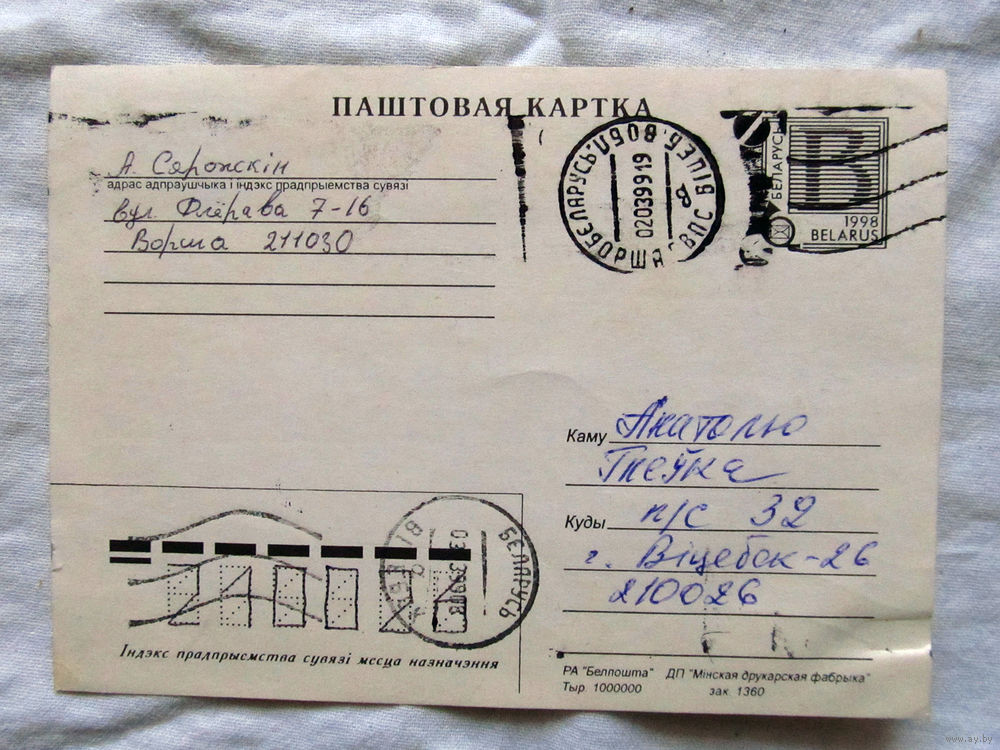 ПАШТОВАЯ КАРТКА
А. Сярожскін
адрас адпраўшчыка і індэкс прадпрыемства сувязі
вул. Флёрава 7-16
Ворша 211030
БЕЛАРУСЬ
ВОРША
0203999 19
В
БЕЛАРУСЬ
B
1998
BELARUS
Каму Анатолю
Куды п/с 32
г. Віцебск-26
210026
БЕЛАРУСЬ
Індэкс прадпрыемства сувязі месца назначэння
РА "Белпошта" ДП "Мінская друкарская фабрыка"
Тыр. 1000000 зак. 1360
www.ay.by